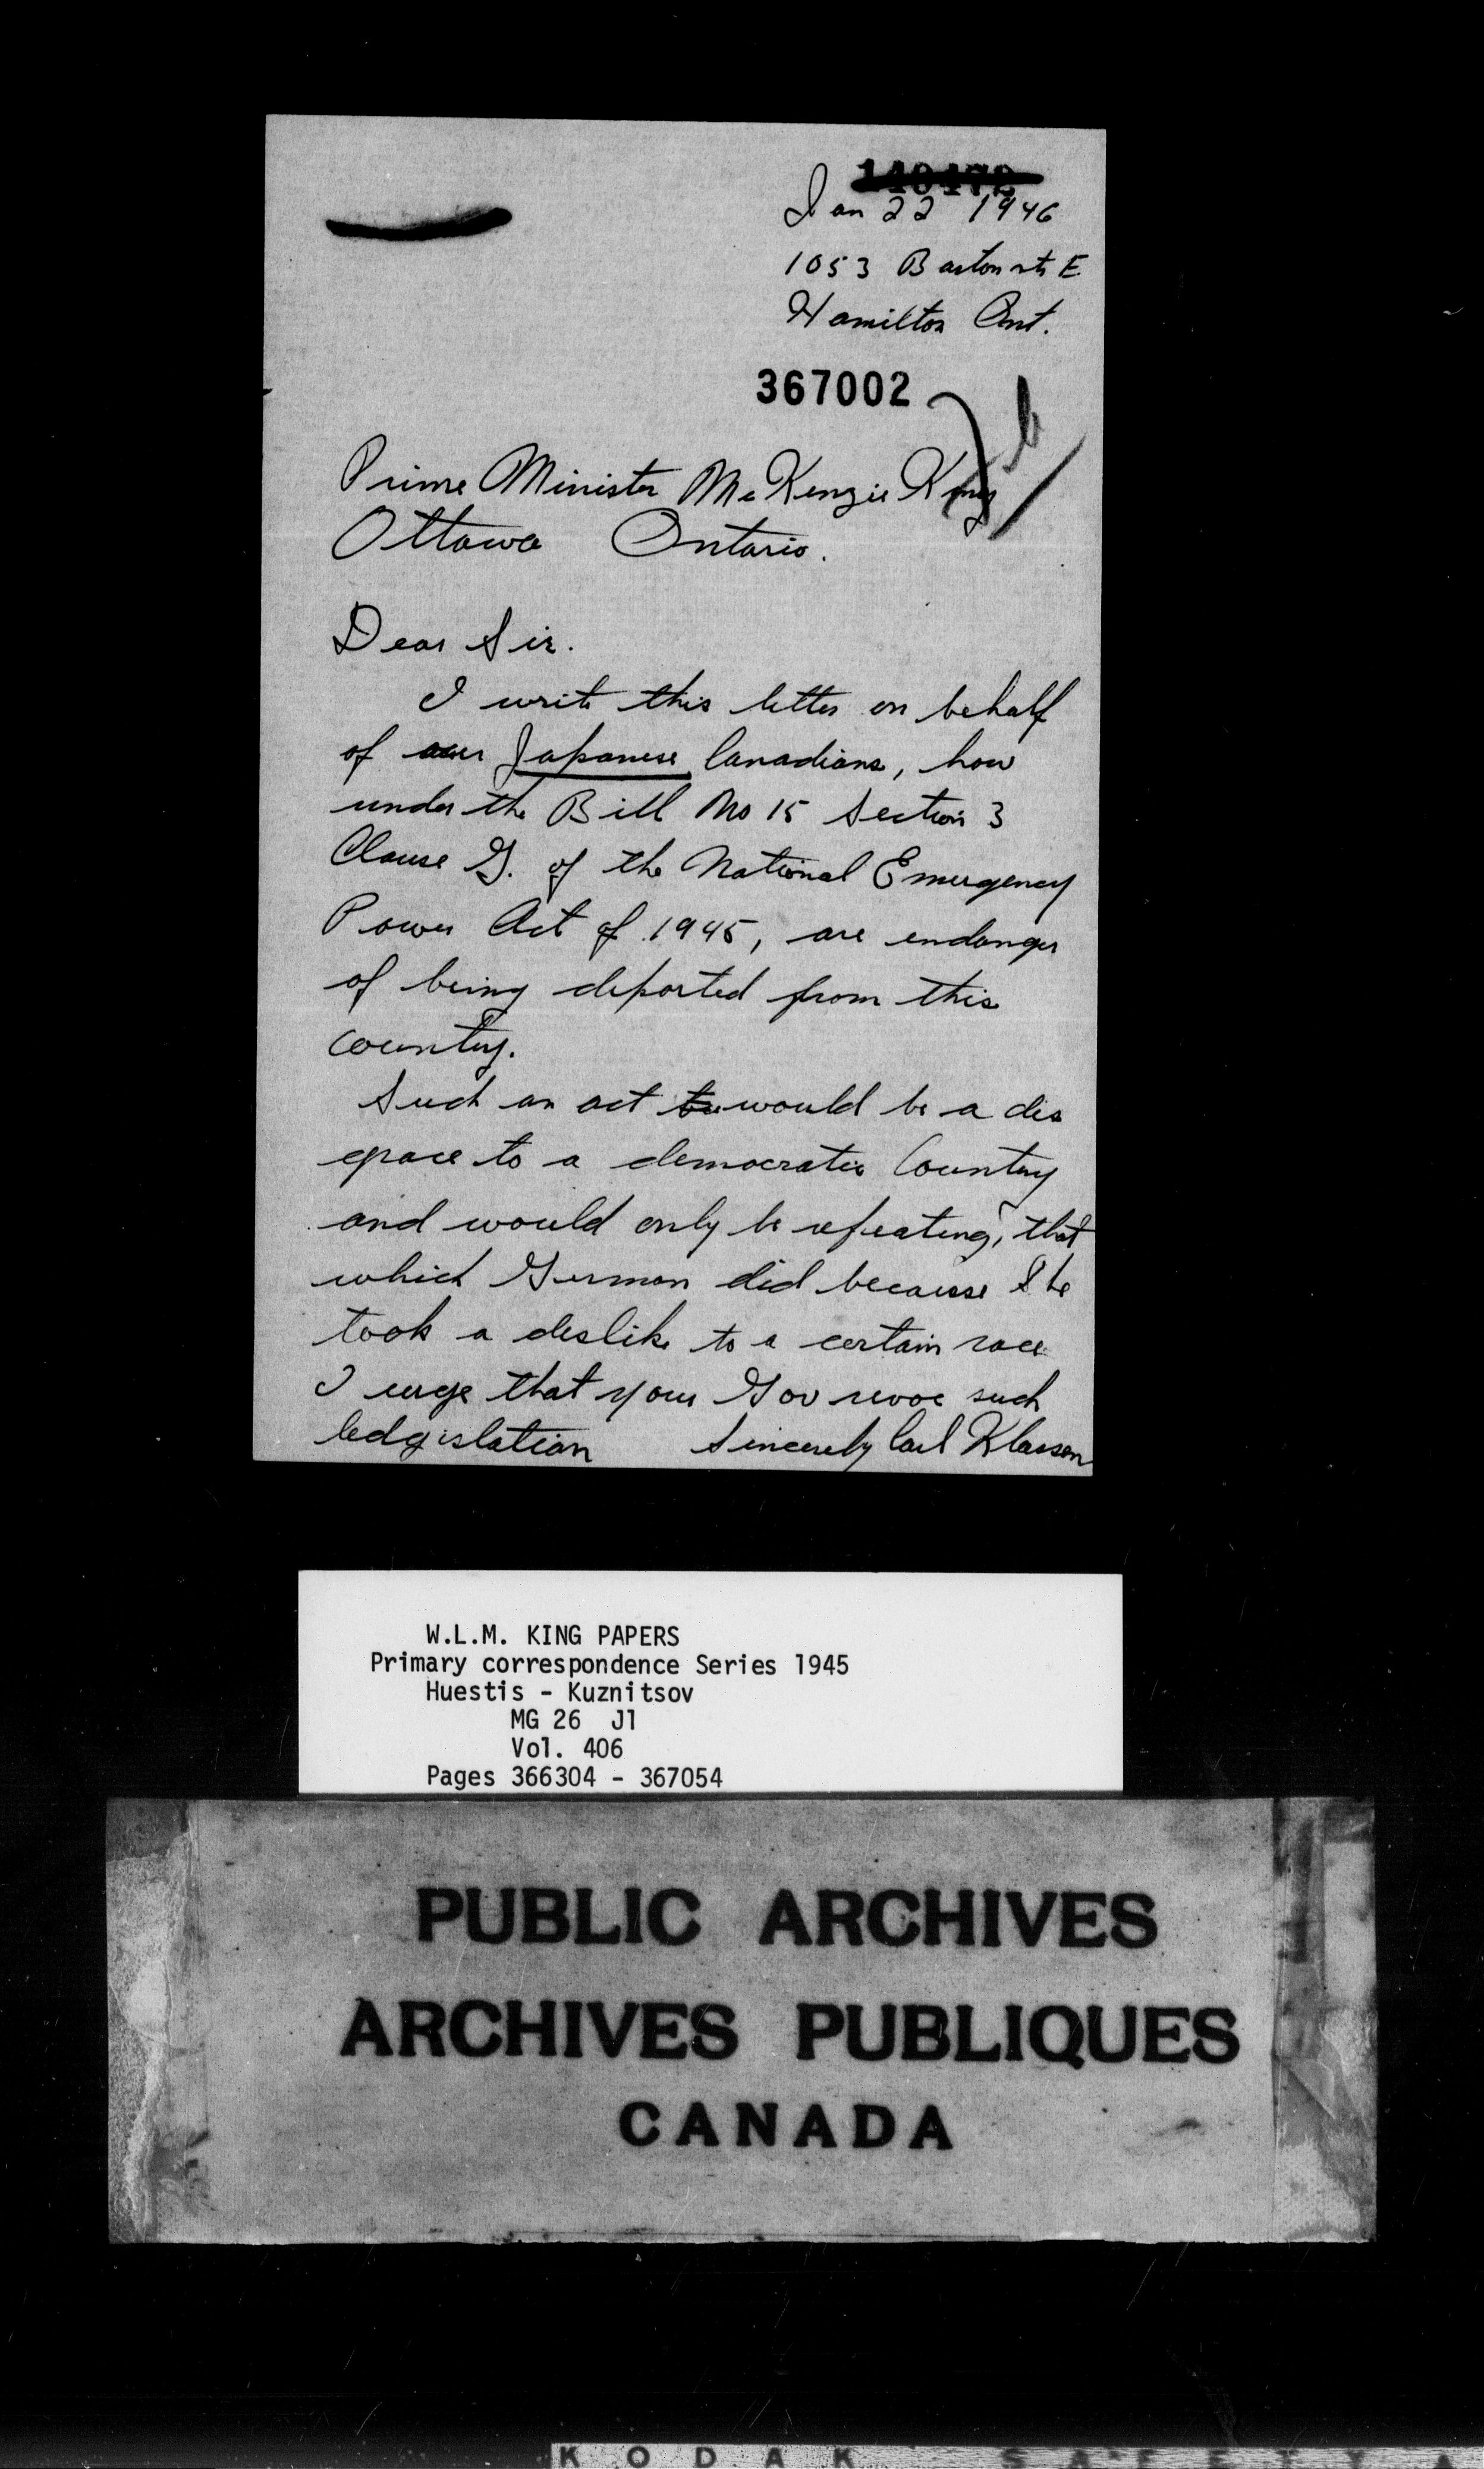 140472
Jan 22 1946
1053 Barton st E
Hamilton Ont.
367002
Prime Minister McKenzie King
Ottawa Ontario.
Dear Sir.
I write this letter on behalf
of our Japanese Canadians, how
under the Bill No 15 Section 3
Clause G. of the National Emergency
Power Act of 1945, are endanger
of being deported from this
country.
Such an act would be a dis
grace to a democratic Country
and would only be repeating, that
which German did because She
took a deslike to a certain race
I urge that your Gov revoe such
ledgislation Sincerely Carl Klassen
W.L.M. KING PAPERS
Primary correspondence Series 1945
Huestis - Kuznitsov
MG 26 J1
Vol. 406
Pages 366304 - 367054
PUBLIC ARCHIVES
ARCHIVES PUBLIQUES
CANADA
KODAK SAFETY